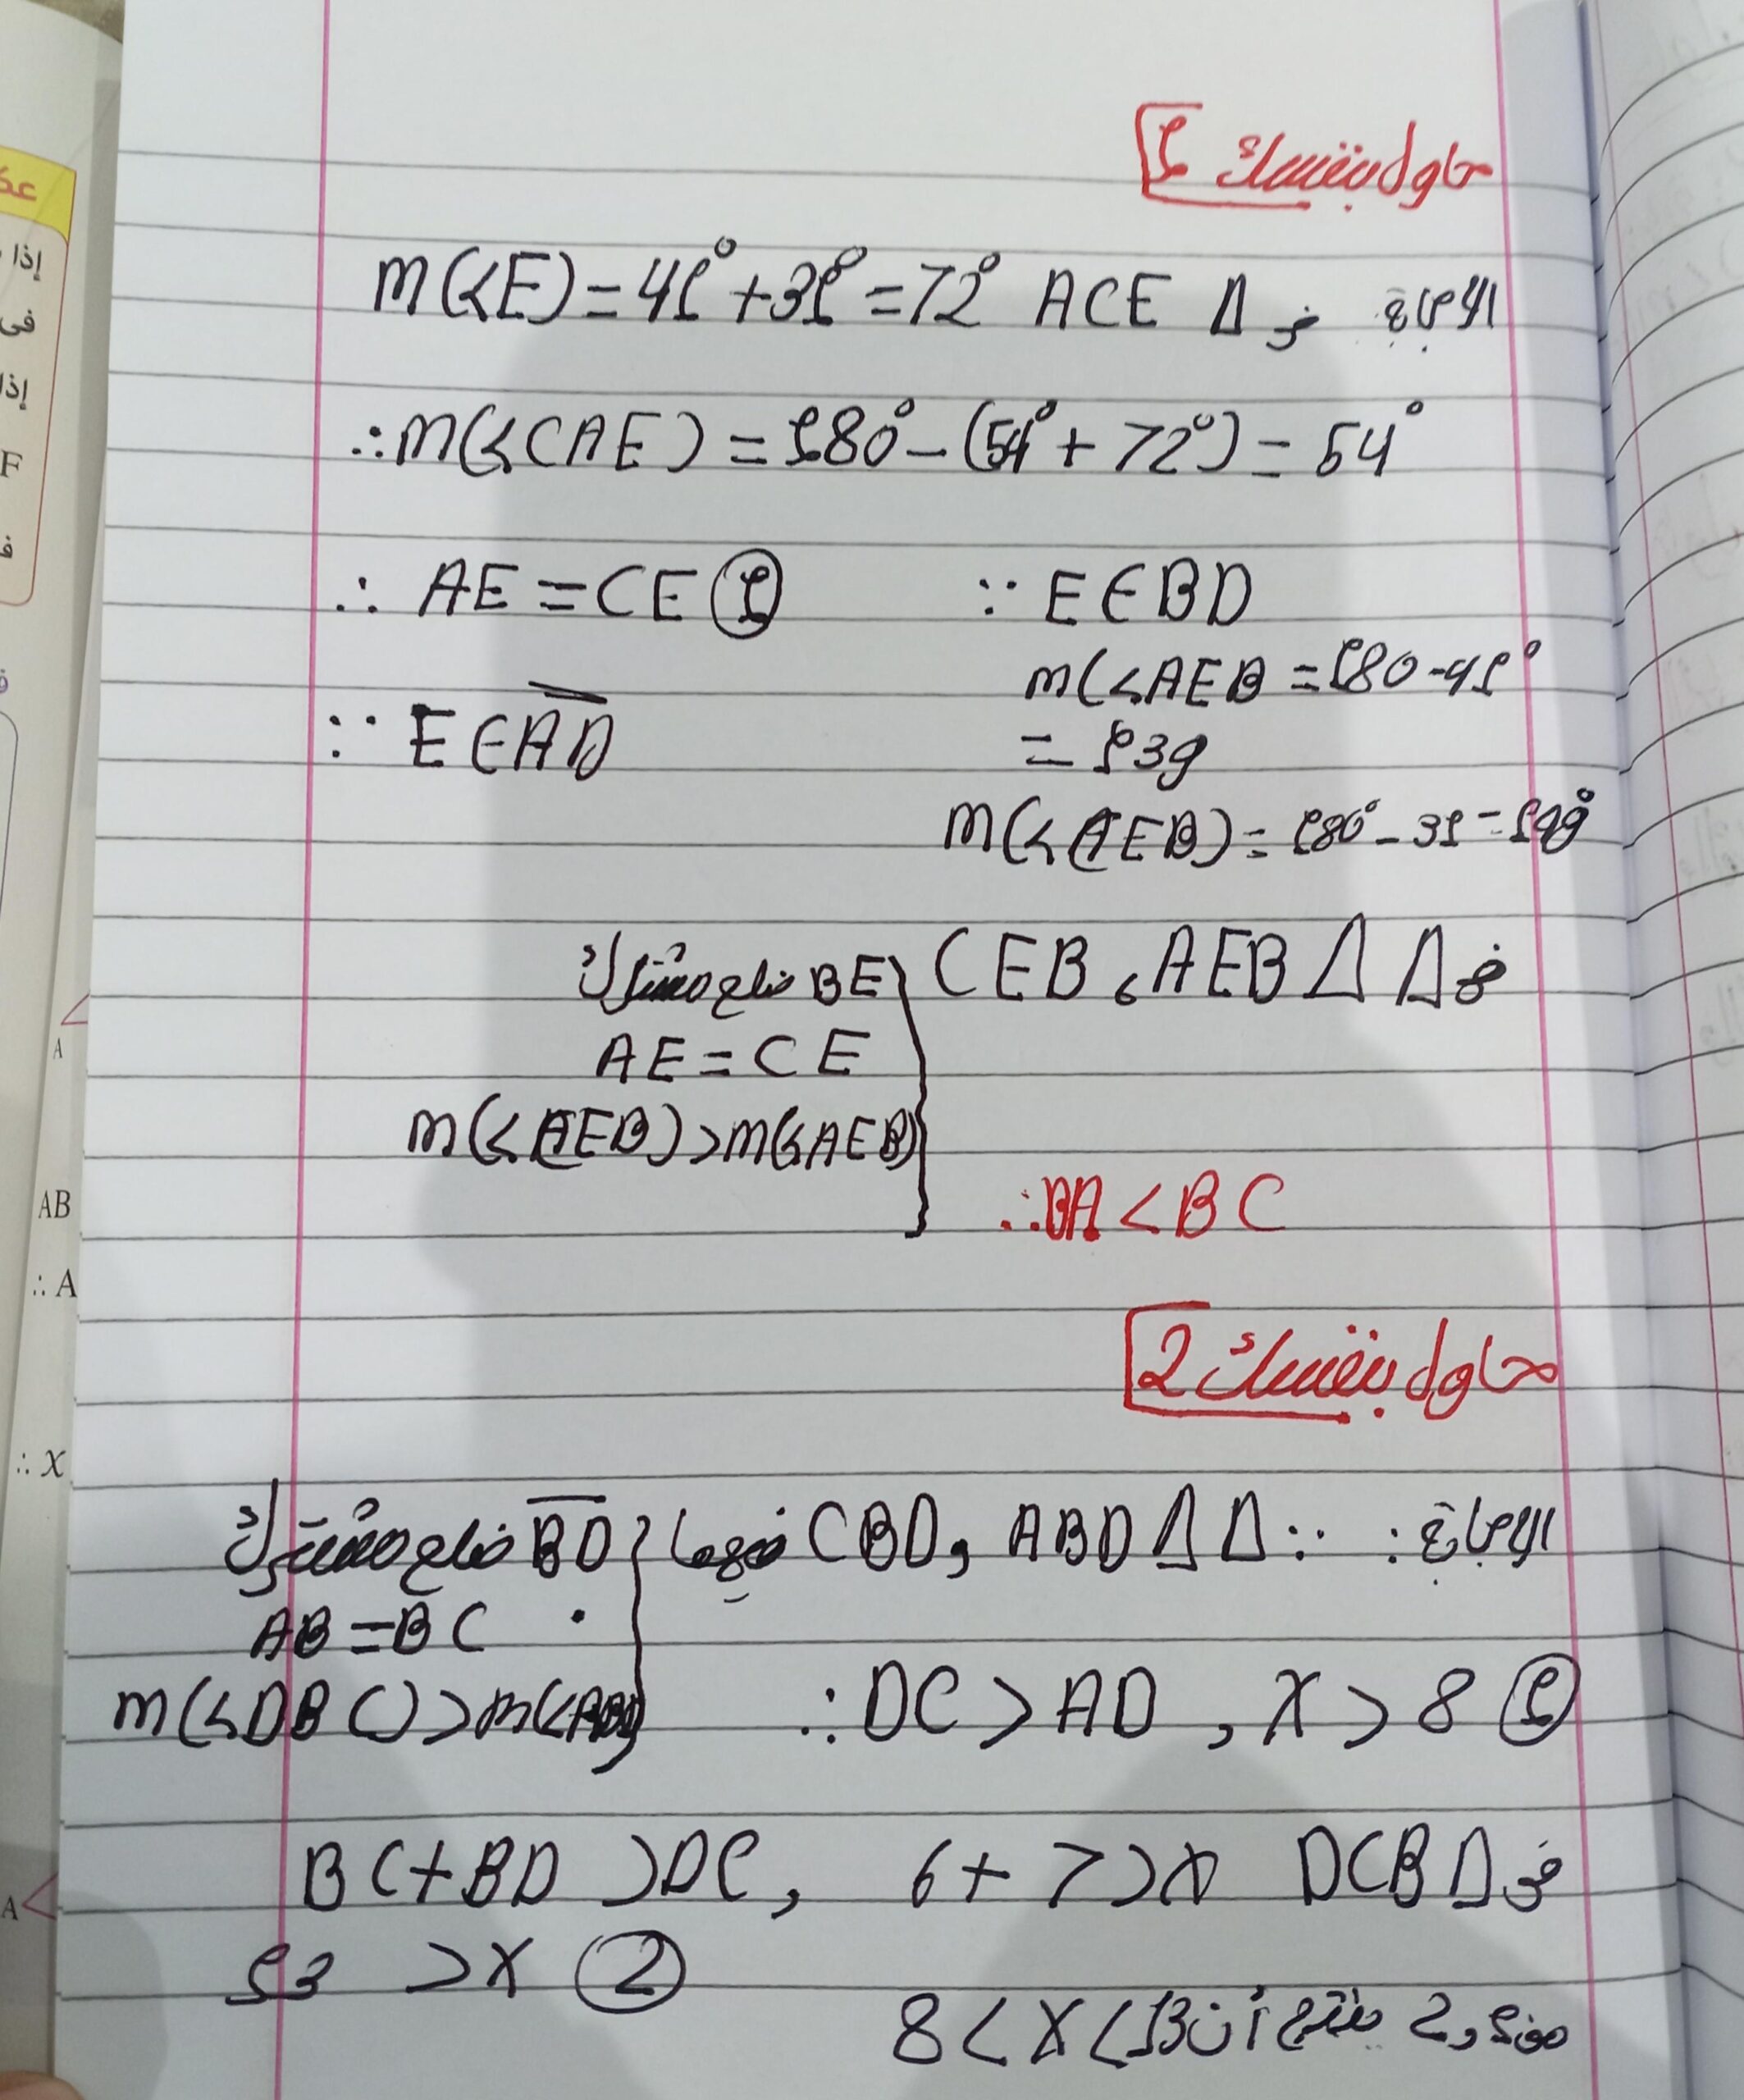 حاول بنفسك 1
الإجابة في Δ ACE m(<E)=41°+31°=72°
∴m(<CAE)=180°-(54°+72°)=54°
∴ AE=CE ① ∵ E∈BD
m(<AEB=180-41°
∵ E∈AD
=139
m(<CEB)=180°-31=149°
في Δ Δ AEB، CEB
BE ضلع مشترك
AE=CE
m(<CEB)>m(<AEB)
∴BA<BC
حاول بنفسك 2
الإجابة: ∵ Δ Δ ABD, CBD فيهما
BD ضلع مشترك
AB=BC
m(<DBC)>m(<ABD)
∴DC>AD, X>8 ①
في Δ DCB BC+BD >DC, 6+7>X
13 >X ②
من 1 و 2 ينتج أن 8<X<13
عد
إذا
في
إذا
F
ف
A
AB
∴ A
∴ X
A